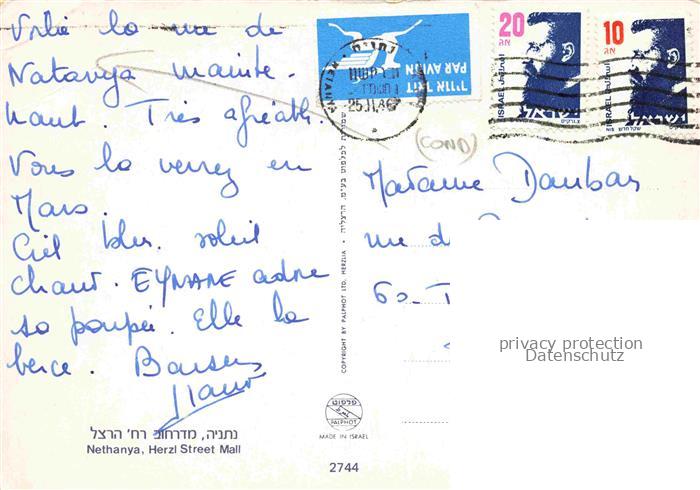 Voilà la rue de
Natanya mainte-
nant. Très agréable.
Vous la verrez en
Mars.
Ciel bleu. soleil
chaud. EYNANE adore
sa poupée. Elle la
berce. Baisers
נתניה, מדרחוב רח' הרצל
Nethanya, Herzl Street Mall
COPYRIGHT BY PALPHOT LTD. HERZLIA
פלפוט
PALPHOT
MADE IN ISRAEL
2744
דואר אויר
PAR AVION
NETANYA
25.11.86
20
אג
ISRAEL
ישראל
10
אג
ISRAEL
ישראל
(COND)
Madame Daubas
rue d
60.
privacy protection
Datenschutz